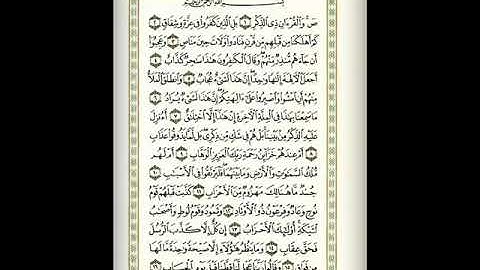 بِسْمِ اللَّهِ الرَّحْمَٰنِ الرَّحِيمِ
صٓ وَالْقُرْءَانِ ذِى الذِّكْرِ ١ بَلِ الَّذِينَ كَفَرُوا۟ فِى عِزَّةٍ وَشِقَاقٍ ٢
كَمْ أَهْلَكْنَا مِن قَبْلِهِم مِّن قَرْنٍ فَنَادَوا۟ وَّلَاتَ حِينَ مَنَاصٍ ٣ وَعَجِبُوٓا۟
أَن جَآءَهُم مُّنذِرٌ مِّنْهُمْ وَقَالَ الْكَٰفِرُونَ هَٰذَا سَٰحِرٌ كَذَّابٌ ٤
أَجَعَلَ الْءَالِهَةَ إِلَٰهًا وَٰحِدًا إِنَّ هَٰذَا لَشَىْءٌ عُجَابٌ ٥ وَانطَلَقَ الْمَلَأُ
مِنْهُمْ أَنِ امْشُوا۟ وَاصْبِرُوا۟ عَلَىٰٓ ءَالِهَتِكُمْ إِنَّ هَٰذَا لَشَىْءٌ يُرَادُ ٦
مَا سَمِعْنَا بِهَٰذَا فِى الْمِلَّةِ الْءَاخِرَةِ إِنْ هَٰذَآ إِلَّا اخْتِلَٰقٌ ٧ أَءُنزِلَ
عَلَيْهِ الذِّكْرُ مِنۢ بَيْنِنَا بَلْ هُمْ فِى شَكٍّ مِّن ذِكْرِى بَل لَّمَّا يَذُوقُوا۟ عَذَابِ
٨ أَمْ عِندَهُمْ خَزَآئِنُ رَحْمَةِ رَبِّكَ الْعَزِيزِ الْوَهَّابِ ٩ أَمْ لَهُم
مُّلْكُ السَّمَٰوَٰتِ وَالْأَرْضِ وَمَا بَيْنَهُمَا فَلْيَرْتَقُوا۟ فِى الْأَسْبَٰبِ ١٠
جُندٌ مَّا هُنَالِكَ مَهْزُومٌ مِّنَ الْأَحْزَابِ ١١ كَذَّبَتْ قَبْلَهُمْ قَوْمُ
نُوحٍ وَعَادٌ وَفِرْعَوْنُ ذُو الْأَوْتَادِ ١٢ وَثَمُودُ وَقَوْمُ لُوطٍ وَأَصْحَٰبُ
لْـَٔيْكَةِ أُو۟لَٰٓئِكَ الْأَحْزَابُ ١٣ إِن كُلٌّ إِلَّا كَذَّبَ الرُّسُلَ
فَحَقَّ عِقَابِ ١٤ وَمَا يَنظُرُ هَٰٓؤُلَآءِ إِلَّا صَيْحَةً وَٰحِدَةً مَّا لَهَا
مِن فَوَاقٍ ١٥ وَقَالُوا۟ رَبَّنَا عَجِّل لَّنَا قِطَّنَا قَبْلَ يَوْمِ الْحِسَابِ ١٦